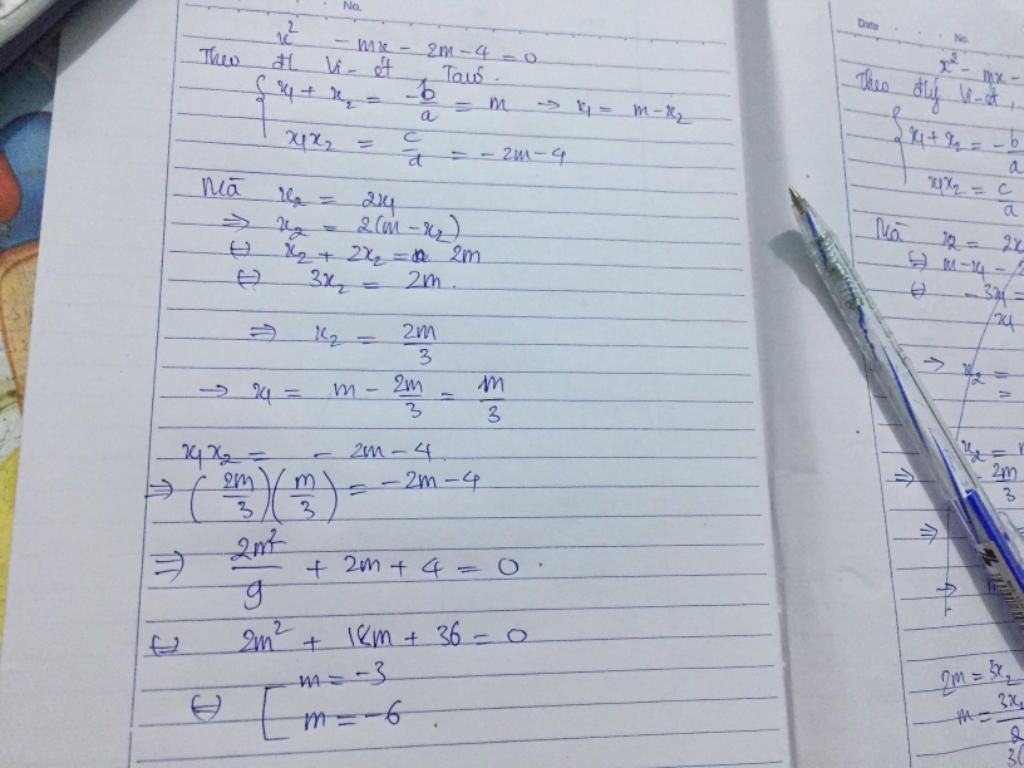 No.
x² - mx - 2m - 4 = 0
Theo đl Vi-ét, Ta có:
{ x₁ + x₂ = -b/a = m → x₁ = m - x₂
x₁x₂ = c/a = -2m - 4
Mà x₂ = 2x₁
⇒ x₂ = 2(m - x₂)
⇔ x₂ + 2x₂ = 2m
⇔ 3x₂ = 2m.
⇒ x₂ = 2m/3
→ x₁ = m - 2m/3 = m/3
x₁x₂ = - 2m - 4
⇒ (2m/3)(m/3) = -2m - 4
⇒ 2m²/9 + 2m + 4 = 0.
⇔ 2m² + 18m + 36 = 0
⇔ [ m = -3
m = -6
Date No.
x² - mx -
Theo đlý Vi-ét,
{ x₁ + x₂ = -b/a
x₁x₂ = c/a
Mà x₂ = 2x
⇔ m - x₁ -
⇔ -3x₁ =
x₁
→ x₂ =
=
x₂ =
⇒ 2m/3
⇒
→
2m = 3x₂
m =